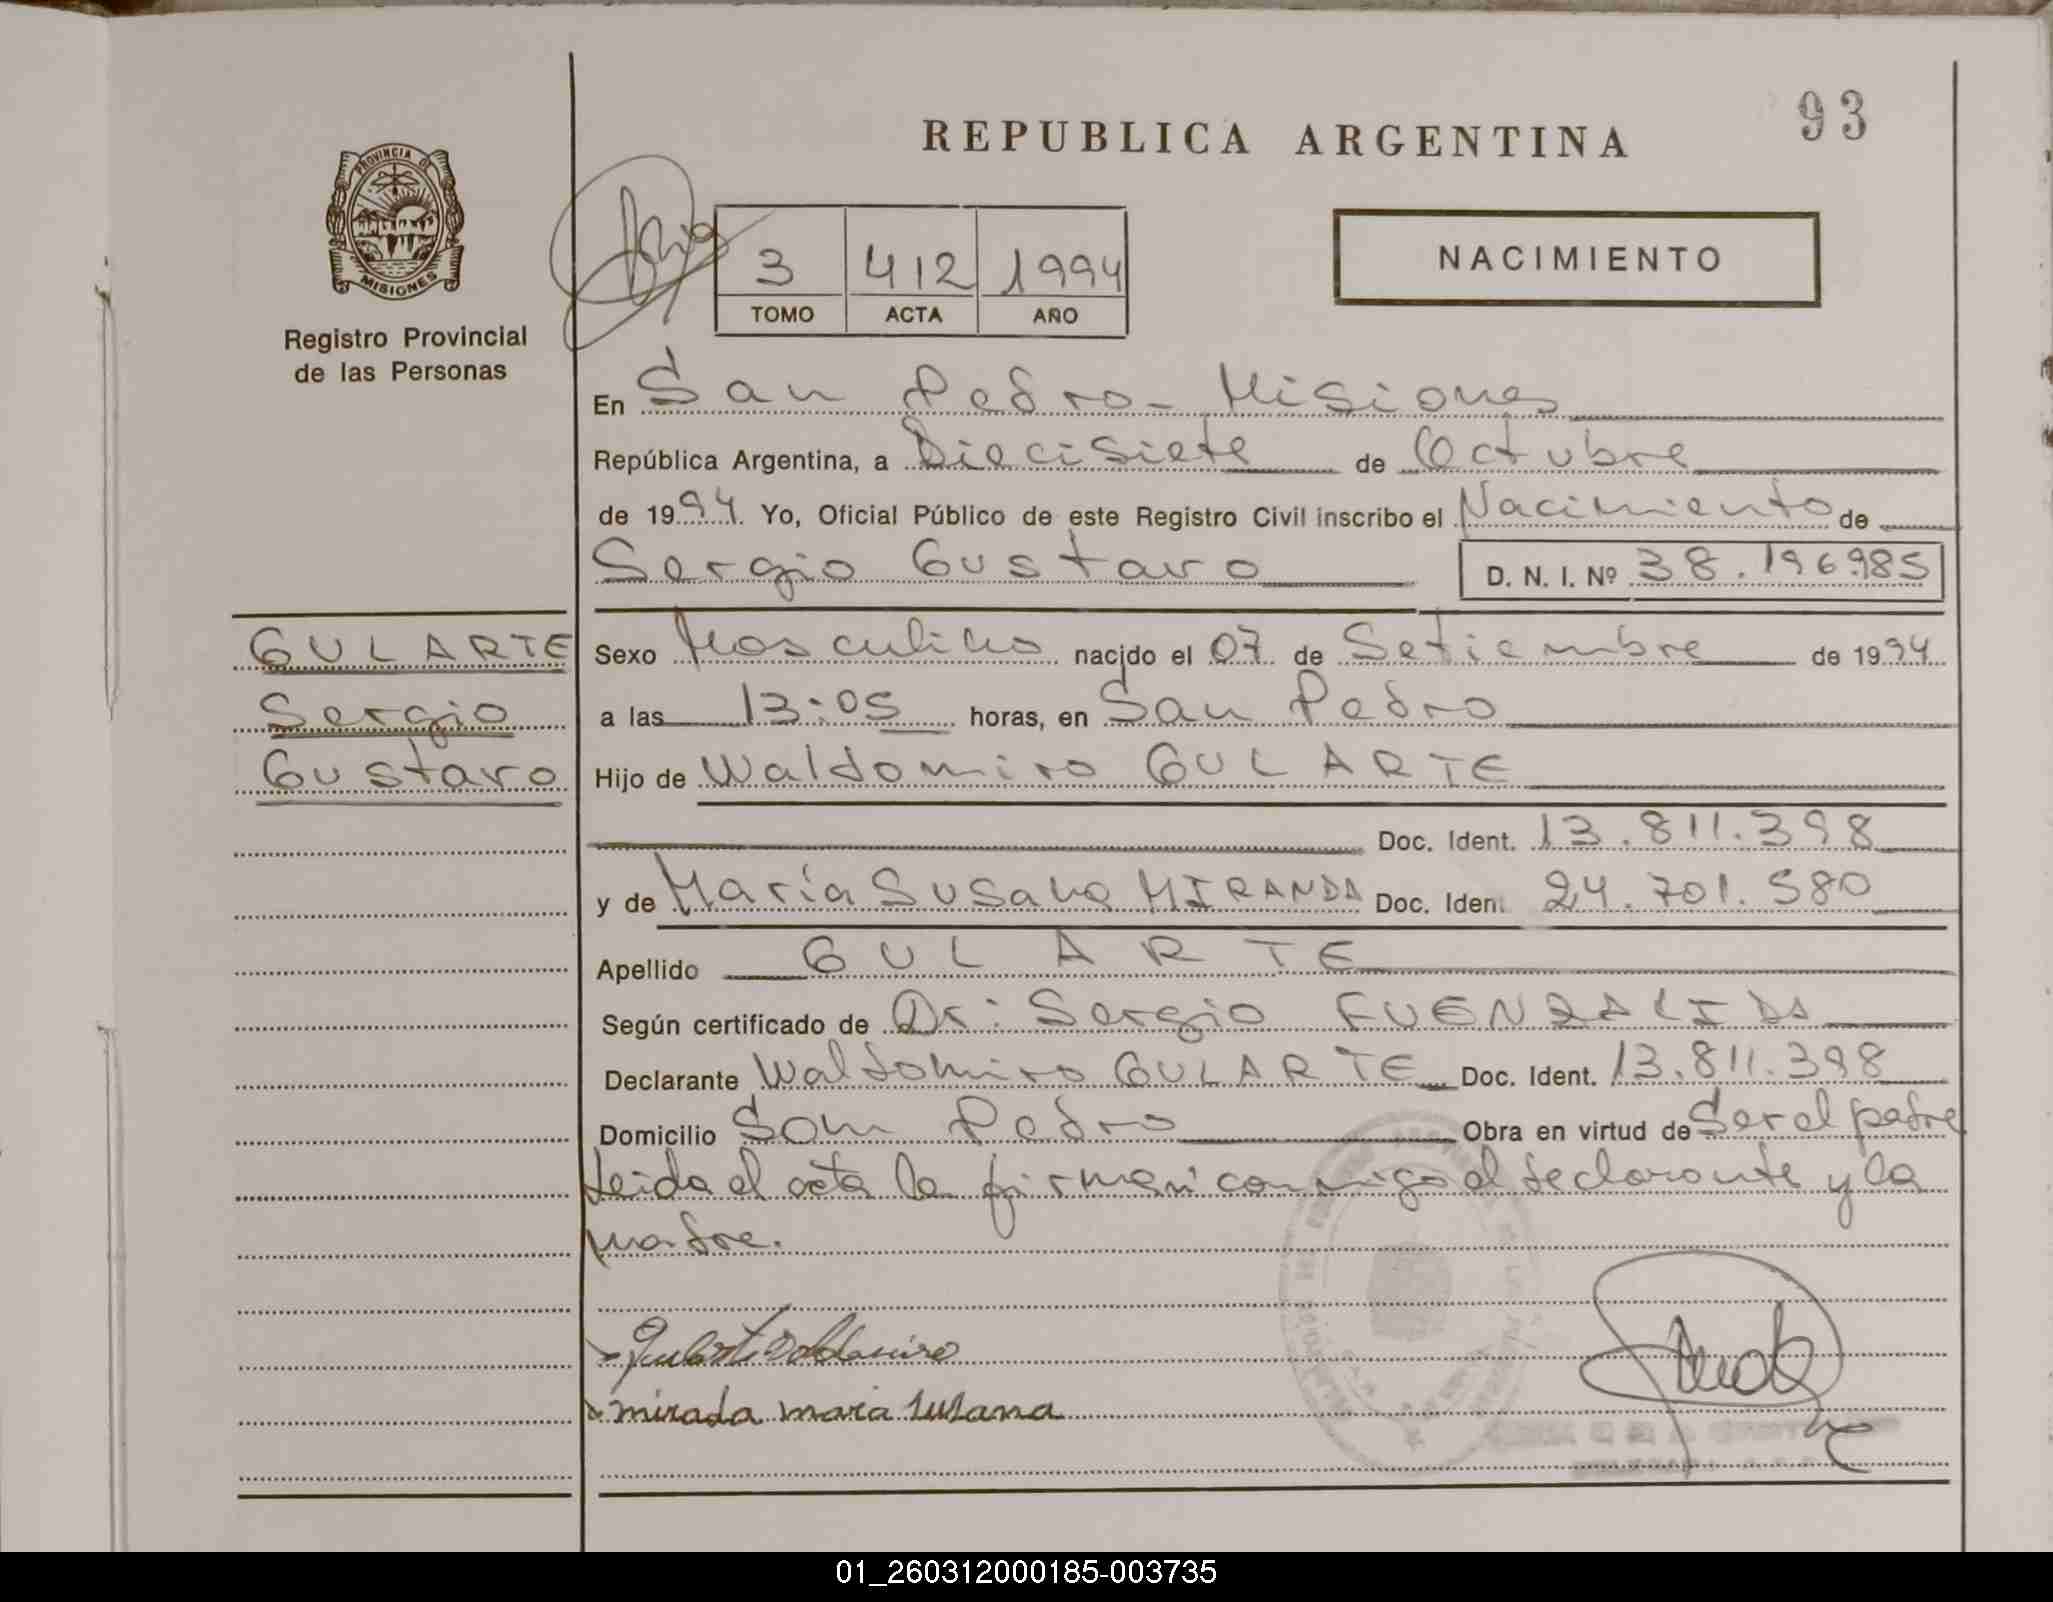 93
REPUBLICA ARGENTINA
PROVINCIA D
MISIONES
Registro Provincial
de las Personas
3 412 1994
TOMO ACTA AÑO
NACIMIENTO
En San Pedro - Misiones
República Argentina, a Diecisiete de Octubre
de 1994. Yo, Oficial Público de este Registro Civil inscribo el Nacimiento de
Sergio Gustavo D. N. I. Nº 38.196985
GULARTE
Sergio
Gustavo
Sexo Masculino nacido el 07 de Setiembre de 1994
a las 13:05 horas, en San Pedro
Hijo de Waldomiro GULARTE
Doc. Ident. 13.811.398
y de María Susana MIRANDA Doc. Iden. 24.701.580
Apellido GULARTE
Según certificado de Dr: Sergio FUENZALIDA
Declarante Waldomiro GULARTE Doc. Ident. 13.811.398
Domicilio San Pedro Obra en virtud de Ser el padre
Leida el acta la firman conmigo el declarante y la
madre.
Gularte Valdomiro
mirada maria susana
01_260312000185-003735